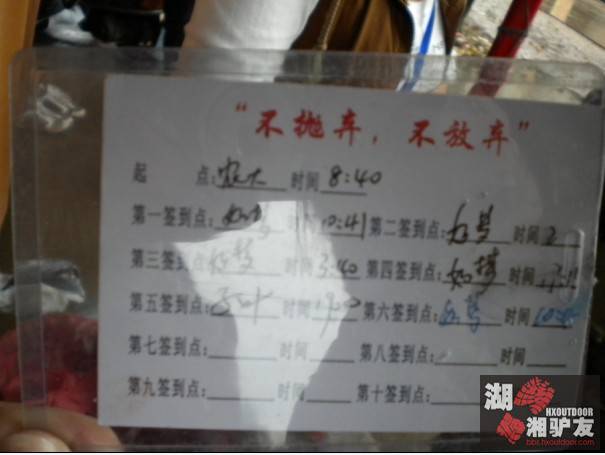 “不抛弃，不放弃”
起 点:农大 时间 8:40
第一签到点: 时间 10:41 第二签到点: 时间 2
第三签到点 时间 3:40 第四签到点:如梦 时间
第五签到点: 时间 第六签到点: 时间
第七签到点: 时间 第八签到点: 时间
第九签到点: 时间 第十签到点:
湖
HXOUTDOOR
湘驴友
bbs.hxoutdoor.com